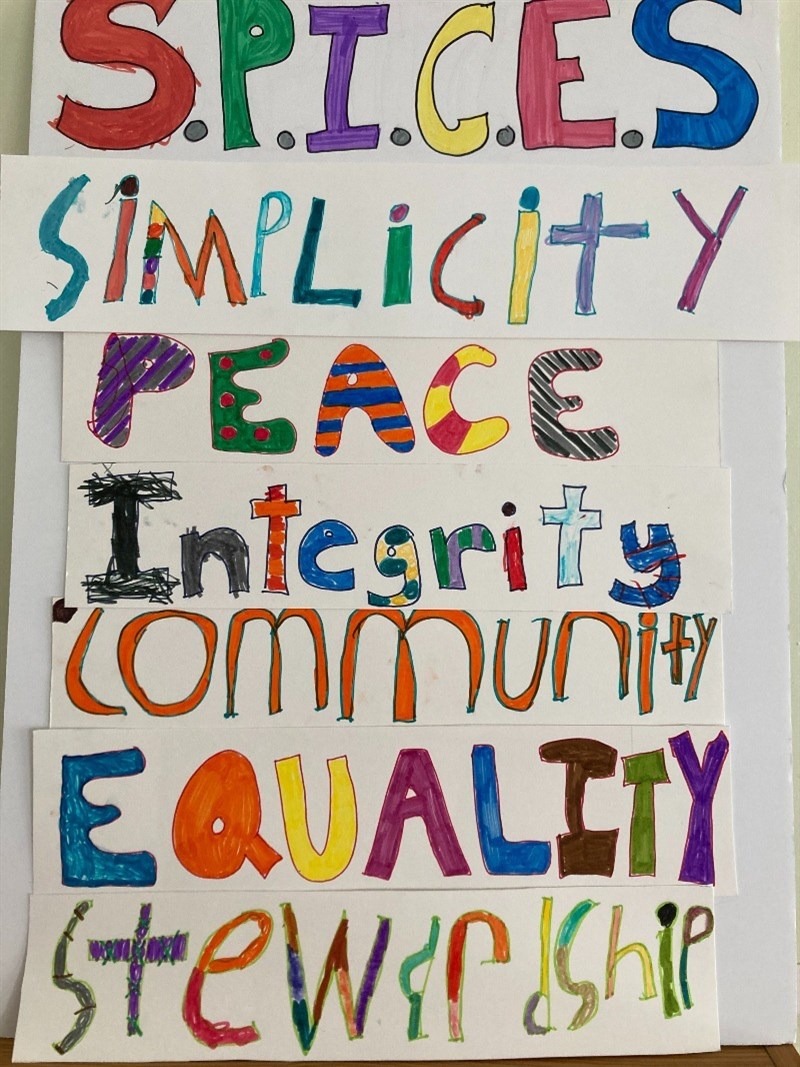 S.P.I.C.E.S
SiMPLiCiTY
PEACE
Integrity
COmmuniTY
EQUALITY
Stewardship